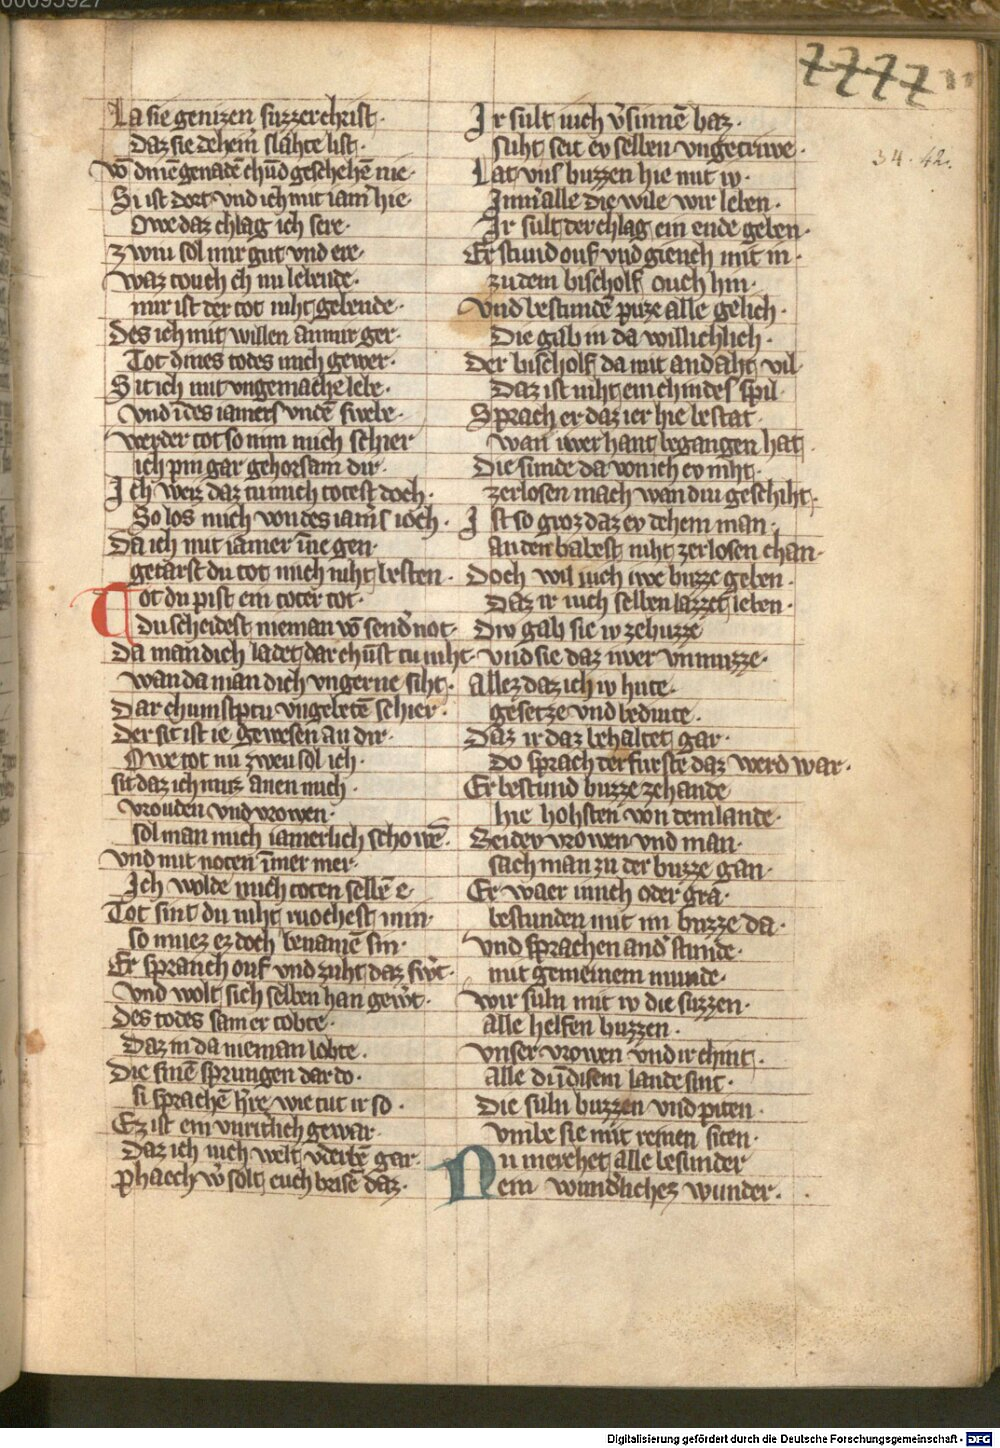 La sie genizen suzzer christ·
Daz sie dehein̄ slahte list·
vō dinē genadē chūd geschehē nie·
Si ist dort· vnd ich mit iam̄ hie·
Owe daz chlag ich sere·
zwiu sol mir gut vnd ere·
waz touch ch nu lebende·
mir ist der tot niht gebende·
Des ich mit willen an mir ger·
Tot dines todes mich gewer·
Sit ich mit vngemache lebe·
vnd ī des iamers vndē swebe·
werder tot so nim mich schier
ich pin gar gehorsam dir·
Ich weiz daz tu mich totest doch·
So los mich von des iam̄s ioch·
Da ich mit iamer īne gen·
getarst du tot mich niht besten·
Tot du pist ein toter tot·
du scheidest nieman vō send̄ not·
Da man dich ladet dar chūst tu niht·
wan da man dich vngerne siht·
Dar chumst ptu vngebetē schier·
Der sit ist ie gewesen an dir·
Owe tot nu zweu sol ich·
sit daz ich muz anen mich·
vrouden vnd vrowen·
sol man mich iamerlich schowē·
vnd mit noten īmer mer·
Ich wolde mich toten selbē e·
Tot sint du niht ruochest min·
so muez ez doch benamē sin·
Er spranch ouf vnd zuht daz sw̄t·
vnd wolt sich selben han gew̄t·
Des todes sam er tobte·
Daz in da nieman lobte·
Die sinē sprungen dar do·
si sprachē h̄re wie tut ir so·
Ez ist ein vnritlich gewar·
Daz ich uich welt v̄derbē gar·
phaech w̄ solt euch brisē daz·
Ir sult uich v̄sinnē baz·
suht seit ev selben vngetriwe·
Lat vns buzzen hie mit iv·
Imm̄ alle die wile wir leben·
Ir sult der chlag ein ende geben·
Er stund ouf vnd giench mit in·
zu dem bischolf ouch hin·
vnd bestundē puze alle gelich·
Die gab in da willichlich·
Der bischolf da mit andaht vil
Daz ist niht ein chindes spil·
Sprach er daz ier hie bestat·
wan iwer hant begangen hat·
Die sunde da von ich ev niht·
zerlosen mach wan diu geschiht·
Ist so groz daz ev dehein man·
an den babest niht zerlosen chan·
Doch wil iuch iwe buzze geben·
Daz ir iuch selben lazzet leben·
Div gab sie iv ze buzze
vnd sie daz iwer vnmuzze·
Allez daz ich iv hute·
gesetze vnd bediute·
Daz ir daz behaltet gar·
Do sprach der furste daz werd war·
Er bestund buzze zehande
hie hohsten von dem lande·
Beidev vrowen vnd man·
sach man zu der buzze gan·
Er waer iunch oder gra·
bestunden mit im buzze da·
vnd sprachen and̄ stunde·
mit gemeinem munde·
wir suln mit iv die suzzen·
alle helfen buzzen·
vnser vrowen vnd ir chint·
alle di īdisem lande sint·
Die suln buzzen vnd piten·
vmbe sie mit reinen siten·
Nu merchet alle besunder
ein wundliches wunder·
34. 42.
Digitalisierung gefördert durch die Deutsche Forschungsgemeinschaft - DFG